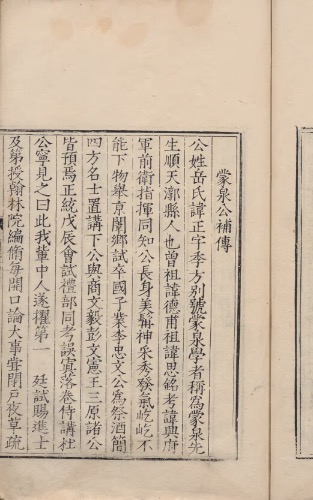 蒙泉公補傳
公姓岳氏諱正字季方別號蒙泉學者稱爲蒙泉先
生順天漷縣人也曾祖諱德甫祖諱思銘考諱興府
軍前衛指揮同知公長身美髯神采秀發氣屹屹不
能下物舉京闈鄉試卒國子業李忠文公爲祭酒簡
四方名士置講下公與商文毅彭文憲王三原諸公
皆預焉正統戊辰會試禮部同考誤寘落卷侍講杜
公寧見之曰此我輩中人遂擢第一 廷試賜進士
及第授翰林院編脩每開口論大事輩閉戸夜草疏